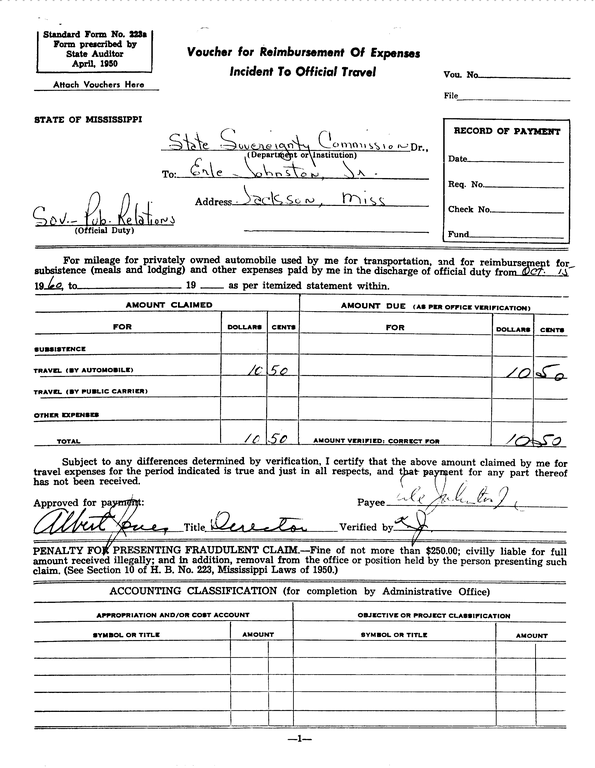 Standard Form No. 223a
Form prescribed by
State Auditor
April, 1950
Attach Vouchers Here
Voucher for Reimbursement Of Expenses
Incident To Official Travel
Vou. No.
File
STATE OF MISSISSIPPI
State Sovereignty Commission Dr.,
(Department or Institution)
To: Erle Johnston, Jr.
Address Jackson, Miss
Sov.- Pub. Relations
(Official Duty)
RECORD OF PAYMENT
Date
Req. No.
Check No.
Fund
For mileage for privately owned automobile used by me for transportation, and for reimbursement for
subsistence (meals and lodging) and other expenses paid by me in the discharge of official duty from Oct.
1960, to 19 as per itemized statement within.
AMOUNT CLAIMED AMOUNT DUE (AS PER OFFICE VERIFICATION)
FOR DOLLARS CENTS FOR DOLLARS CENTS
SUBSISTENCE
TRAVEL (BY AUTOMOBILE) 10 50 10 50
TRAVEL (BY PUBLIC CARRIER)
OTHER EXPENSES
TOTAL 10 50 AMOUNT VERIFIED; CORRECT FOR 10 50
Subject to any differences determined by verification, I certify that the above amount claimed by me for
travel expenses for the period indicated is true and just in all respects, and that payment for any part thereof
has not been received.
Approved for payment: Payee Erle Johnston Jr.
Albert Jones Title Director Verified by
PENALTY FOR PRESENTING FRAUDULENT CLAIM.—Fine of not more than $250.00; civilly liable for full
amount received illegally; and in addition, removal from the office or position held by the person presenting such
claim. (See Section 10 of H. B. No. 223, Mississippi Laws of 1950.)
ACCOUNTING CLASSIFICATION (for completion by Administrative Office)
APPROPRIATION AND/OR COST ACCOUNT OBJECTIVE OR PROJECT CLASSIFICATION
SYMBOL OR TITLE AMOUNT SYMBOL OR TITLE AMOUNT
—1—